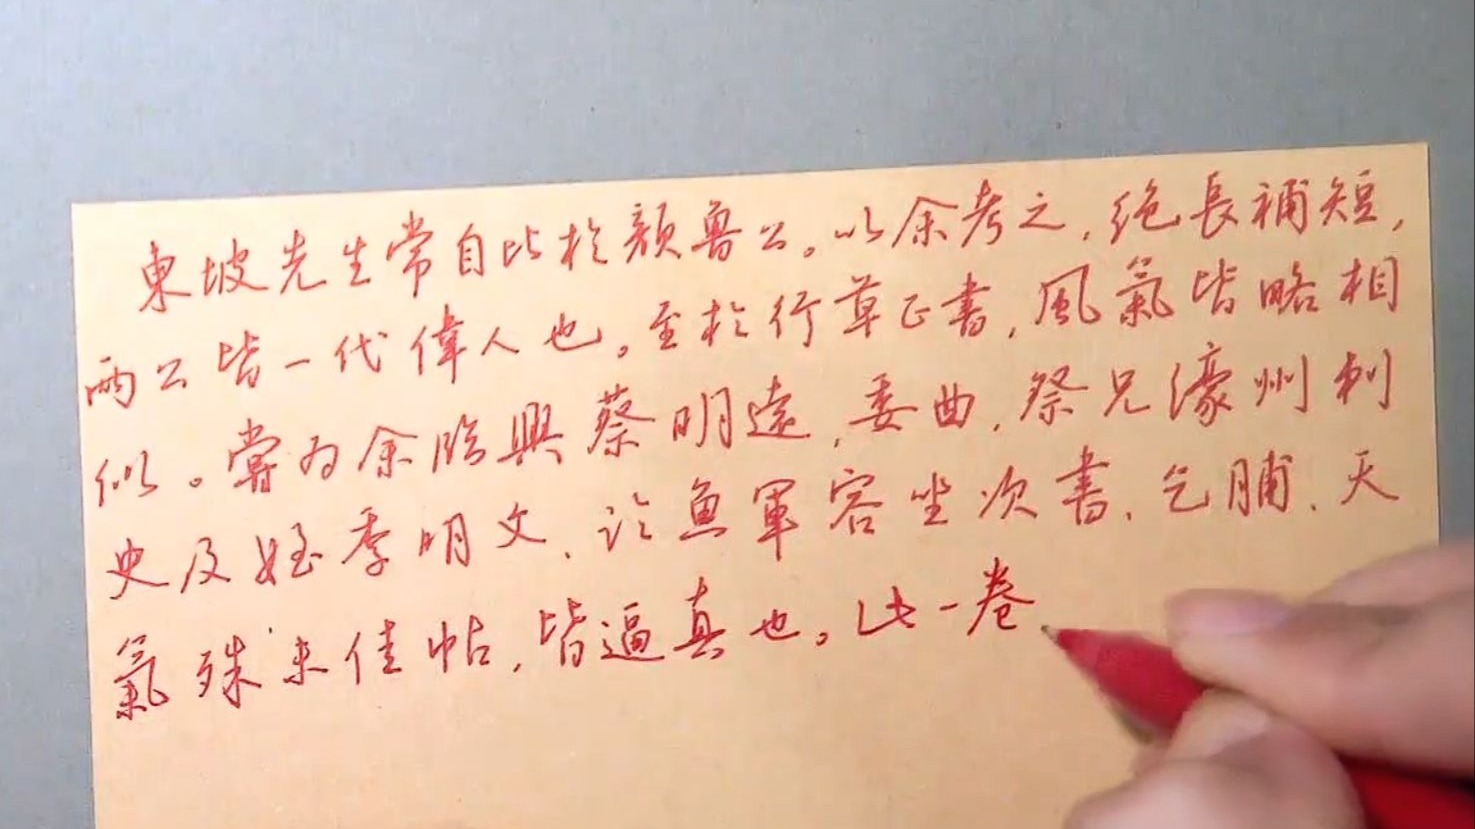 東坡先生常自比於顏魯公。以余考之,絶長補短,
兩公皆一代偉人也。至於行草正書,風氣皆略相
似。嘗為余臨與蔡明遠,委曲,祭兄濠州刺
史及姪季明文、論魚軍容坐次書、乞脯、天
氣殊未佳帖,皆逼真也。此一卷